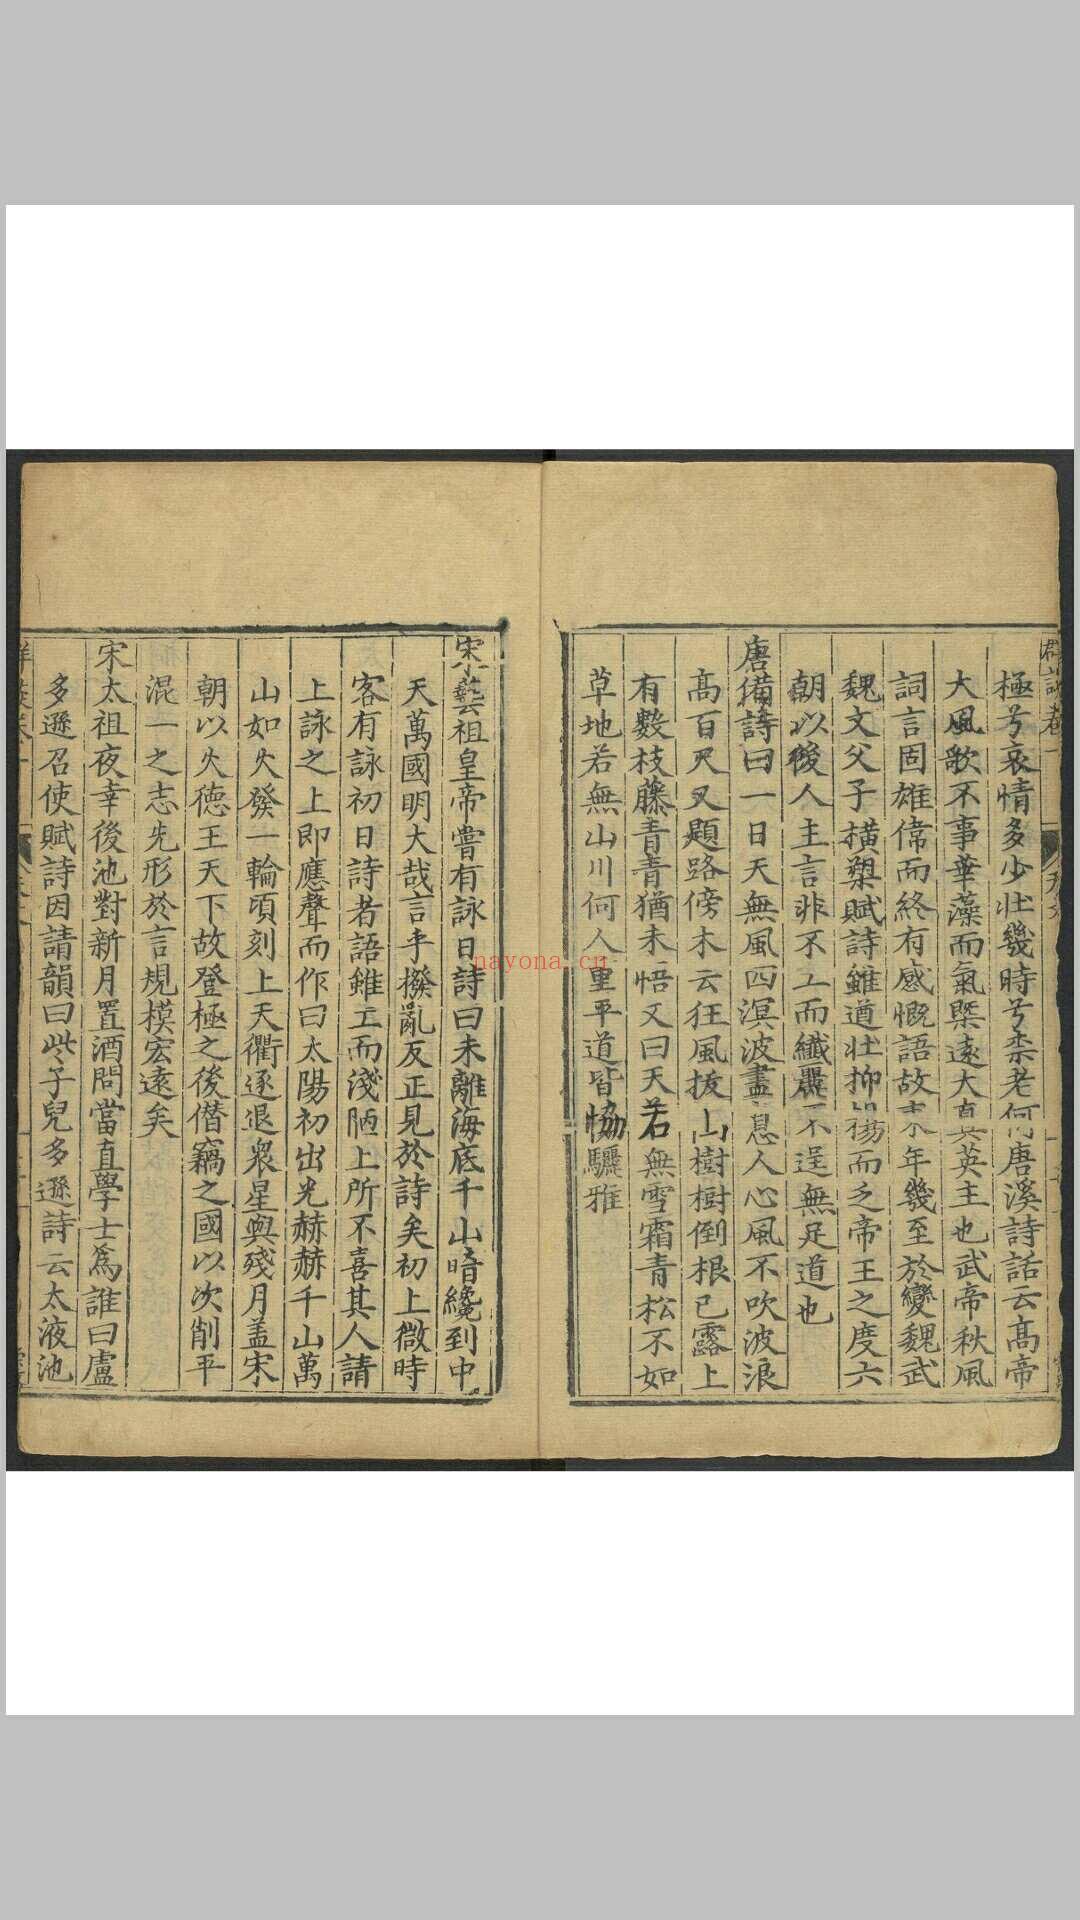 極兮哀情多少壯幾時兮柰老何唐溪詩話云高帝
大風歌不事華藻而氣槩遠大真英主也武帝秋風
詞言固雄偉而終有感慨語故末年幾至於變魏武
魏文父子橫槊賦詩雖遒壯抑揚而乏帝王之度六
朝以後人主言非不工而纖麗不逞無足道也
唐備詩曰一日天無風四溟波盡息人心風不吹波浪
高百尺又題路傍木云狂風拔山樹樹倒根已露上
有數枝藤青青猶未悟又曰天若無雪霜青松不如
草地若無山川何人重平道皆恊驪雅
宋藝祖皇帝嘗有詠日詩曰未離海底千山暗纔到中
天萬國明大哉言乎撥亂反正見於詩矣初上微時
客有詠初日詩者語雖工而淺陋上所不喜其人請
上詠之上即應聲而作曰太陽初出光赫赫千山萬
山如火發一輪頃刻上天衢逐退衆星與殘月盖宋
朝以火德王天下故登極之後僣竊之國以次削平
混一之志先形於言規模宏遠矣
宋太祖夜幸後池對新月置酒問當直學士爲誰曰盧
多遜召使賦詩因請韻曰些子兒多遜詩云太液池
nayona.cn